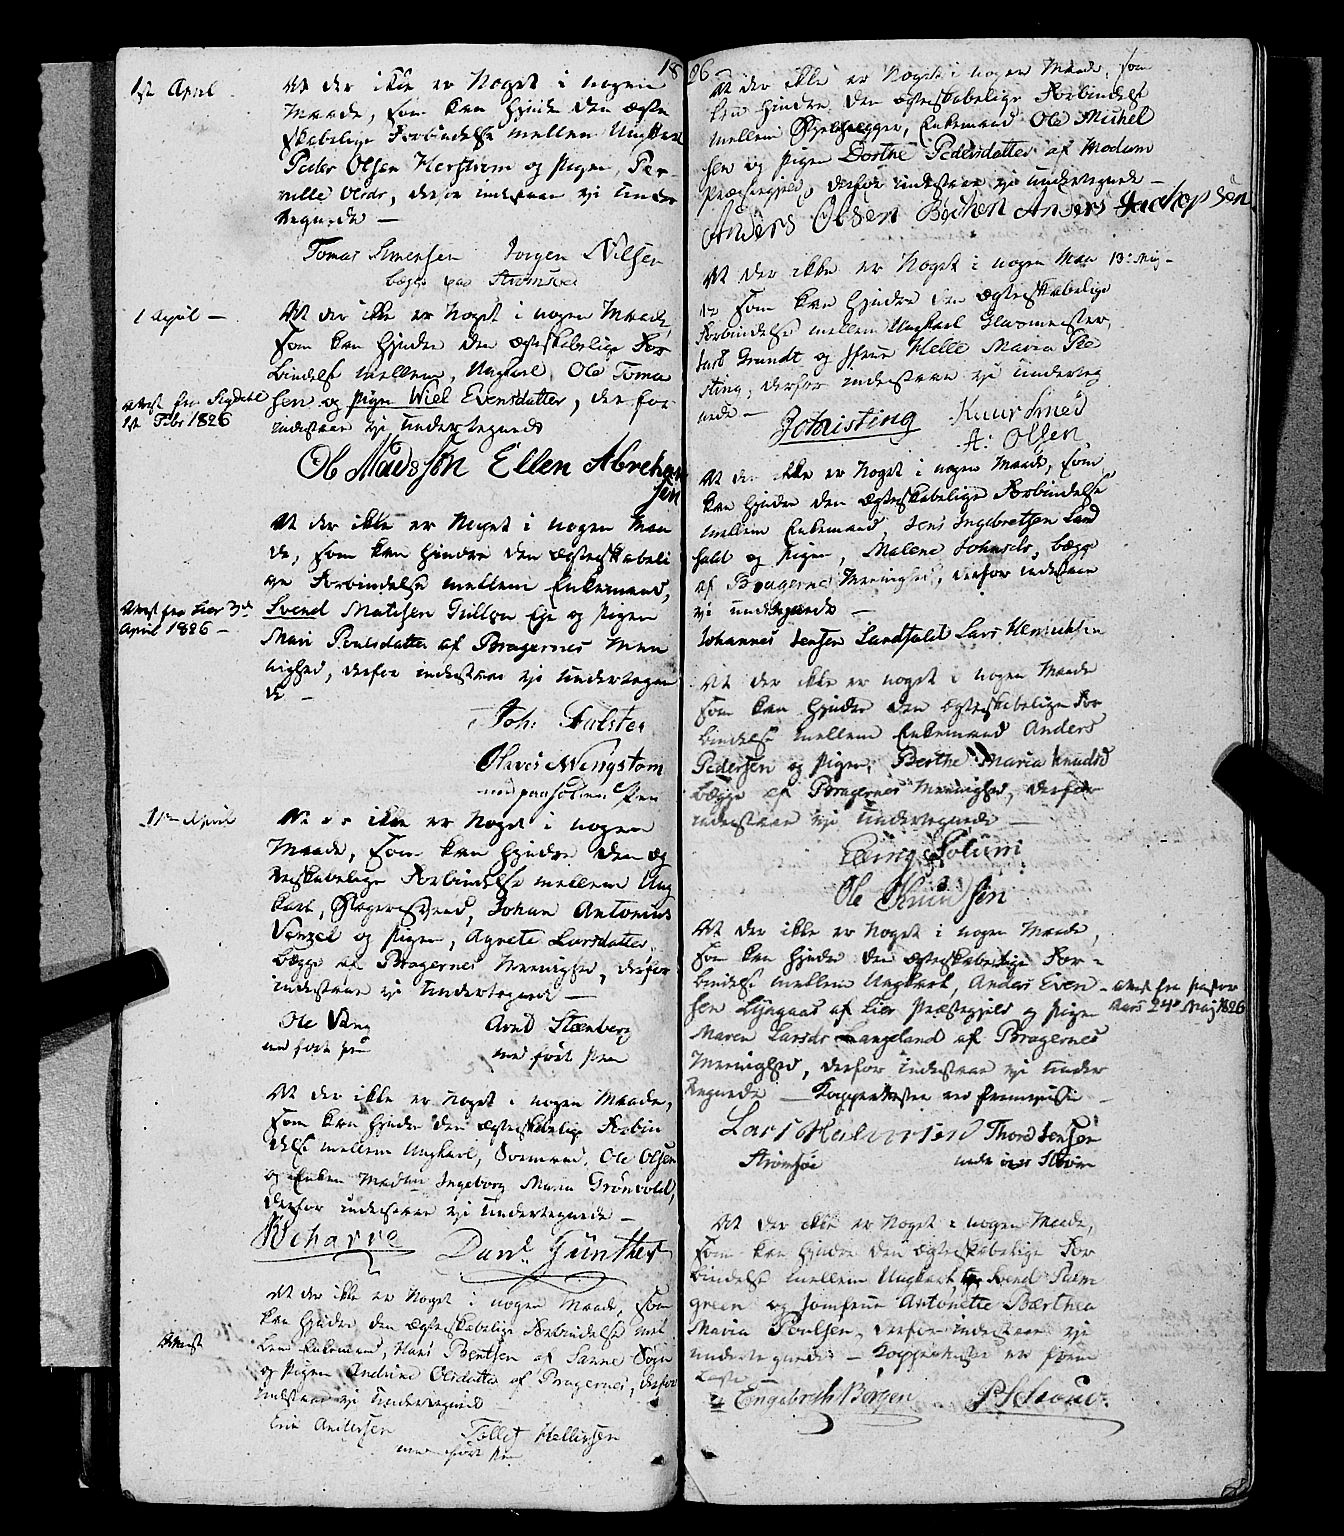 1826
1st April
At der ikke er Noget i nogen
Maade, som kan hindre den ægte
skabelige Forbindelse mellem Ungkarl
Peder Olsen Herstrom og Pigen, Per-
nille Olsdr, derfor indestaae vi under
tegnede —
Tomas Simensen Jørgen Nilsen
begge paa Strømsøe
1 April —
At der ikke er Noget i nogen Maade,
som kan hindre den ægteskabelige For
bindelse mellem, Ungkarl, Ole Toma
sen og Pigen Wiel Evensdatter, der for
indestaae vi undertegnede
Attest fra Sigdahl
1st Febr 1826
Ole Madssøn Ellen Abreham
sen
At der ikke er Noget i nogen Maa
de, som kan hindre den ægteskabeli
ge Forbindelse mellem Enkemand,
Svend Matisen Eje og Pigen
Mari Poulsdatter af Bragernes Men
nighed, derfor indestaae vi undertegne
de —
Attest fra Lier 3de
April 1826 —
Joh: Falster
Oluves Wengstom
med paaholden Pen
April
At der ikke er Noget i nogen
Maade, som kan hindre den æg
teskabelige Forbindelse mellem Ung
karl, Johan Antonius
Venzel og Pigen, Agnete Larsdatter
begge af Bragernes Menighed, derfor
indestaae vi undertegnede —
Ole Vang Arnt Steenberg
med ført Pen med ført Pen
At der ikke er Noget i nogen Maade,
som kan hindre den ægteskabelige Forbin
delse mellem Ungkarl, Svemand, Ole Olsen
og Enken Madm Ingeborg Maria Grønvold,
derfor indestaae vi undertegnede —
B Scharre Danl. Günther
At der ikke er Noget i nogen Maade, som
kan hindre den ægteskabelige Forbindelse mel
lem Enkemand, Hans Bentsen af Sanne Sogn
og Pigen Andrine Olsdatter af Bragernes, derfor
indestaae vi undertegnede —
Attest
Erik Andersen Tollef Hellissen
med ført Pen
At der ikke er Noget i nogen Maade, som
kan hindre den ægteskabelige Forbindelse
mellem Enkemand Ole Michel
sen og Pigen Dorthe Pedersdatter af Modum
Præstegjeld, derfor indestaae vi undertegnede —
Anders Olsen Bechen Anders Jachopsen
13: Maj —
At der ikke er Noget i nogen Maa
de som kan hindre den ægteskabelige
Forbindelse mellem Ungkarl Glasmester,
Brandt og Jfrue Helle Maria Pii
sting, derfor indestaae vi underteg
nede —
Joh Risting Knut Smed
A: Olsen
At der ikke er Noget i nogen Maade, som
kan hindre den ægteskabelige Forbindelse
mellem Enkemand Jens Ingebretsen Land
fald og Pigen, Malene Johnsdr, begge
af Bragernes Menighed, derfor indestaae
vi undertegnede —
Johannes Jensen Landfald Lars Henricksen
At der ikke er noget i nogen Maade
som kan hindre den ægteskabelige For
bindelse mellem Enkemand Anders
Pedersen og Pigen, Berthe Maria Knudsd
begge af Bragernes Menighed, derfor
indestaae vi undertegnede —
Solum
Ole Knudsen
At der ikke er Noget i nogen Maade,
som kan hindre den ægteskabelige For-
bindelse mellem Ungkarl, Anders Even
sen Lijngaas af Lier Præstegjeld og Pigen
Maren Larsdr Langeland af Bragernes
Menighed, derfor indestaae vi under
tegnede — Koppeattester ere fremviste —
Attest fra Pastor
24de Maj 1826
Lars Halvorsen Thord Jensen
Strømsøe
At der ikke er Noget i nogen Maade,
som kan hindre den ægteskabelige For
bindelse mellem Ungkarl, Svend Palm
green og Jomfrue Antonette Barthea
Maria Poulsen, derfor indestaae vi
undertegnede — Koppeattester er frem
lagte —
Engebreth Børgen P Schou